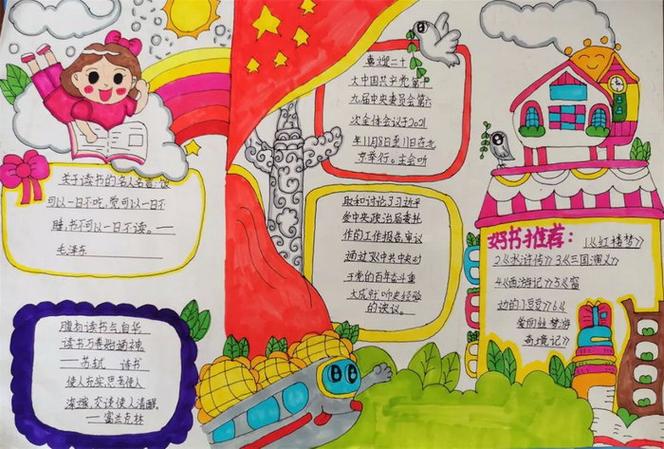 关于读书的名人名言：饭
可以一日不吃，觉可以一日不
睡，书不可以一日不读。——
毛泽东
腹有诗书气自华
读书万卷始通神
——苏轼 读书
使人充实，思考使人
深邃，交谈使人清醒。
——富兰克林
喜迎二十
大中国共产党第十
九届中央委员会第六
次全体会议于2021
年11月8日至11日在北
京举行。全会听
取和讨论了习近平
受中央政治局委托
作的工作报告，审议
通过《中共中央
于党的百年奋斗重
大成就历史经验
的决议。
好书推荐：1.《红楼梦》
2.《水浒传》3《三国演义》
4.《西游记》5《窗
边的小豆豆》6《
爱丽丝梦游
奇境记》